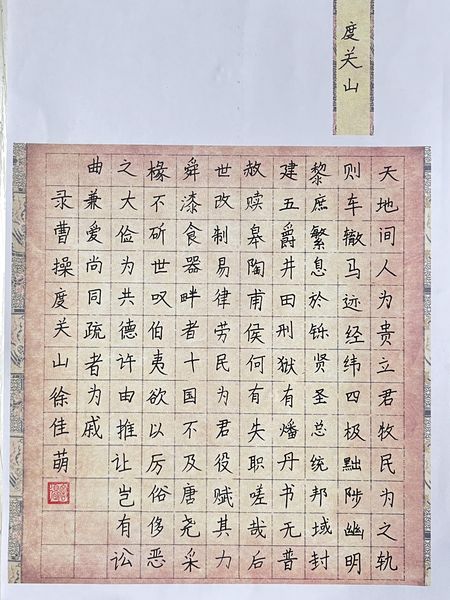 度关山
天地间人为贵立君牧民为之轨
则车辙马迹经纬四极黜陟幽明
黎庶繁息於铄贤圣总统邦域封
建五爵井田刑狱有燔丹书无普
赦赎皋陶甫侯何有失职嗟哉后
世改制易律劳民为君役赋其力
舜漆食器畔者十国不及唐尧采
椽不斫世叹伯夷欲以厉俗侈恶
之大俭为共德许由推让岂有讼
曲兼爱尚同疏者为戚
录曹操度关山徐佳萌